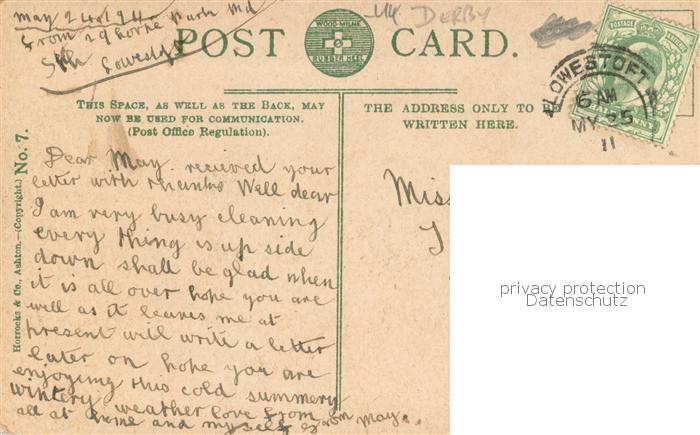 May 24.194
from 29 Lorne Park Rd
Sth Lowestoft
UK DERBY
POST CARD.
WOOD-MILNE
RUBBER HEEL
POSTAGE
LOWESTOFT
6 AM
MY 25
11
THIS SPACE, AS WELL AS THE BACK, MAY
NOW BE USED FOR COMMUNICATION.
(Post Office Regulation).
THE ADDRESS ONLY TO BE
WRITTEN HERE.
Horrocks & Co., Ashton.—(Copyright.) No. 7.
Dear May. recieved your
letter with thanks Well dear
I am very busy cleaning
every thing is up side
down shall be glad when
it is all over hope you are
well as it leaves me at
present will write a letter
later on hope you are
enjoying this cold summery
wintery weather love from
all at home and myself from May.
Miss
privacy protection
Datenschutz